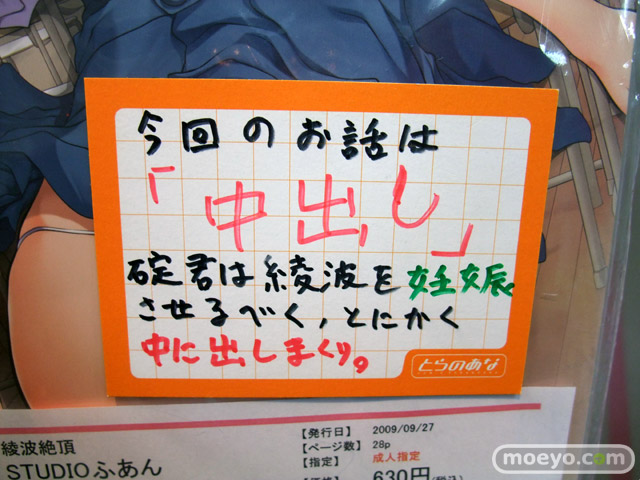 今回のお話は
「中出し」
碇君は綾波を妊娠
させるべく、とにかく
中に出しまくり。
とらのあな
綾波絶頂
STUDIOふあん
【発行日】 2009/09/27
【ページ数】 28p
【指定】 成人指定
630円
moeyo.com